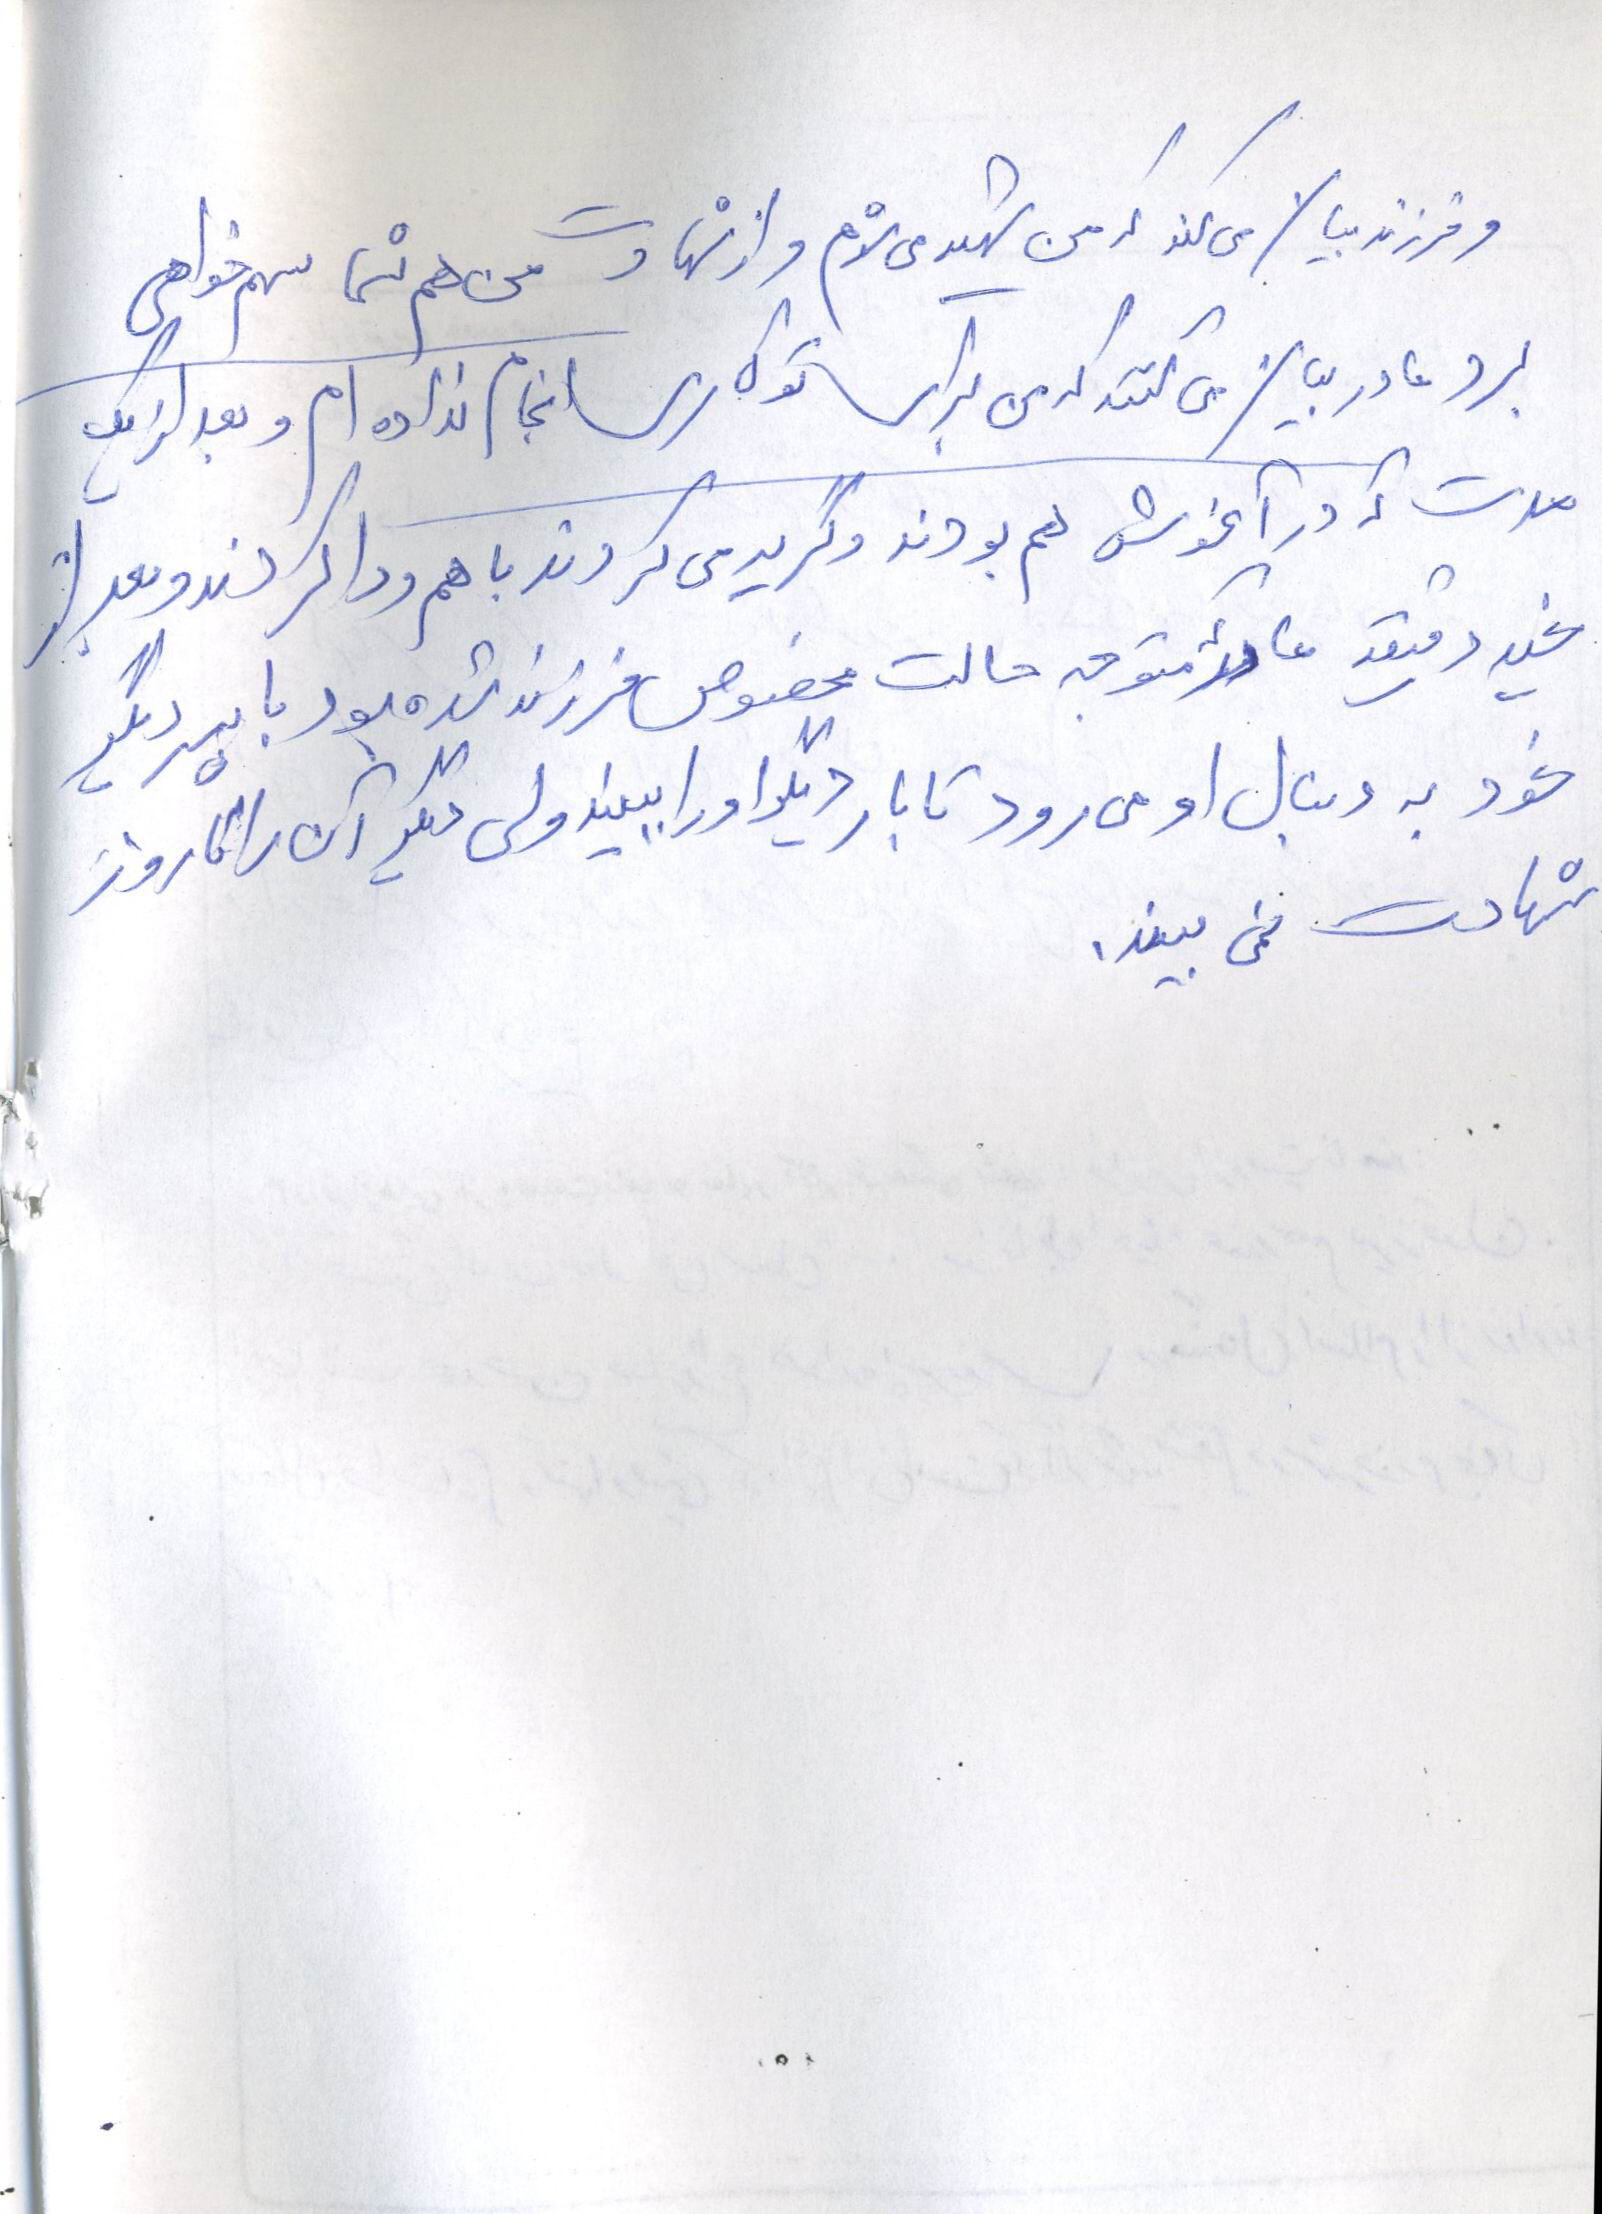 و فرزند بیان می کند که من شهید می شوم و از شهادت من هم شما سهم خواهی
برد مادر بیان می کند که من برای تو کاری انجام نداده ام و بعد از یک
مدت که در آغوش هم بودند و گریه می کردند با هم وداع کردند و بعد از
چند دقیقه مادر متوجه حالت مخصوص فرزند شده بود با پسر دیگر
خود به دنبال او می رود تا بار دیگر او را ببیند ولی دیگر آن را تا روز
شهادت نمی بیند.